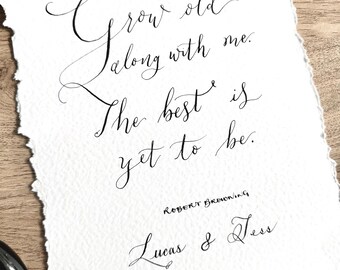 Grow old
along with me.
The best is
yet to be.
ROBERT BROWNING
Lucas & Tess